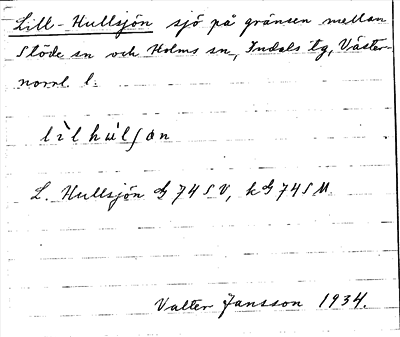 Lill-Hullsjön sjö på gränsen mellan
Stöde sn och Holms sn, Indals tg, Väster-
norrl. l.
lìlhùlʃơn
L. Hullsjön G 74 S V, kG 74 S M.
Valter Jansson 1934.